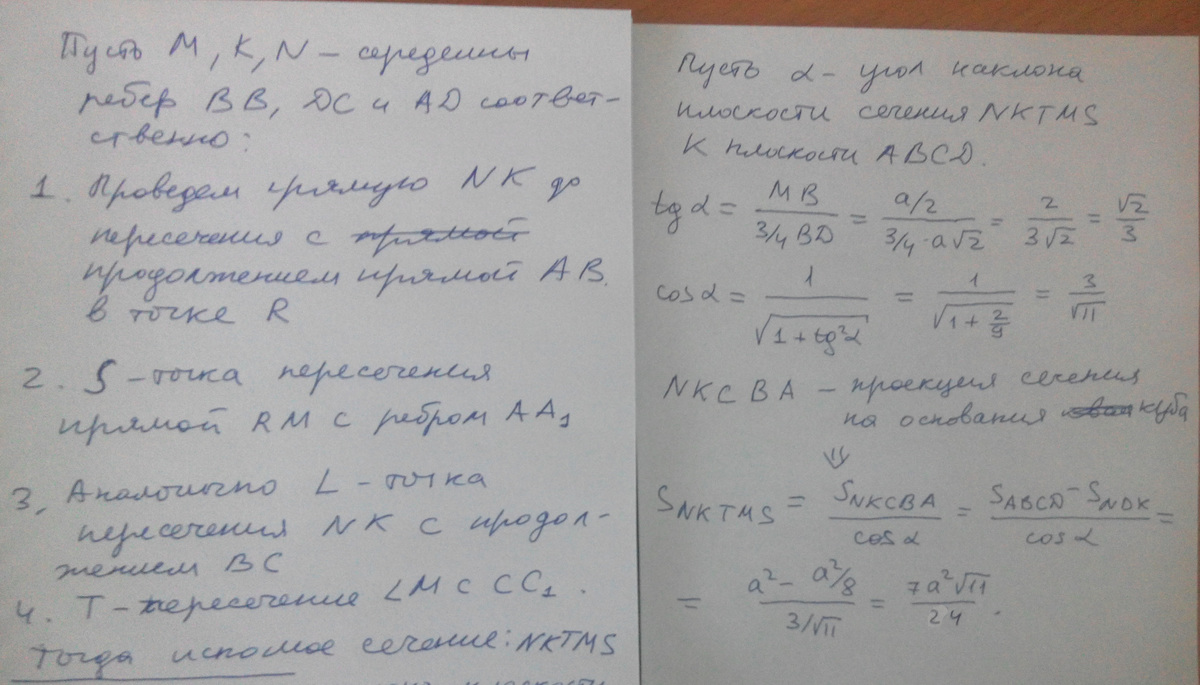 Пусть M, K, N – середины
ребер BB, DC и AD соответ-
ственно:
1. Проведем прямую NK до
пересечения с прямой
продолжением прямой AB.
в точке R
2. S – точка пересечения
прямой RM с ребром AA₁
3, Аналогично L – точка
пересечения NK с продол-
жением BC
4. T – пересечение LM с CC₁.
Тогда искомое сечение: NKTMS
плоскости
Пусть α – угол наклона
плоскости сечения NKTMS
к плоскости ABCD.
tg α = MB / (3/4 BD) = (a/2) / (3/4 · a√2) = 2 / (3√2) = √2 / 3
cos α = 1 / √(1 + tg²α) = 1 / √(1 + 2/9) = 3 / √11
NKCBA – проекция сечения
на основания куба
⇓
S_NKTMS = S_NKCBA / cos α = (S_ABCD – S_NDK) / cos α =
= (a² – a²/8) / (3/√11) = 7a²√11 / 24.